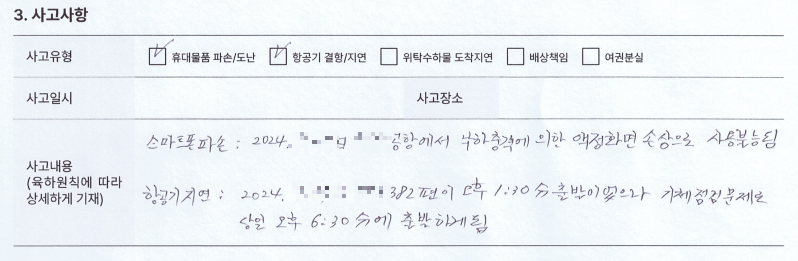 3. 사고사항
사고유형 ☑ 휴대물품 파손/도난 ☑ 항공기 결항/지연 ☐ 위탁수하물 도착지연 ☐ 배상책임 ☐ 여권분실
사고일시 사고장소
사고내용
(육하원칙에 따라
상세하게 기재)
스마트폰파손 : 2024. 공항에서 낙하충격에 의한 액정화면 손상으로 사용불능됨
항공기지연 : 2024. 382편이 오후 1:30분 출발이었으나 기체점검문제로
당일 오후 6:30분에 출발하게됨